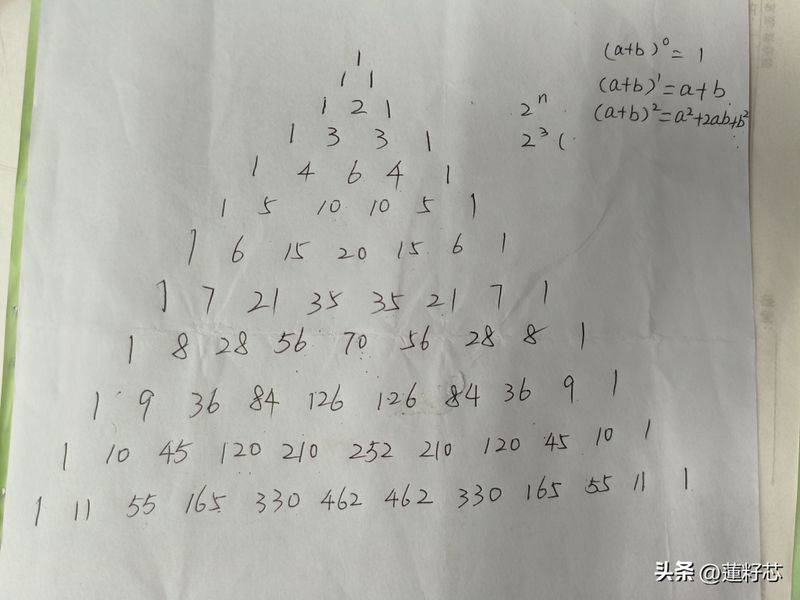 1
1 1
1 2 1
1 3 3 1
1 4 6 4 1
1 5 10 10 5 1
1 6 15 20 15 6 1
1 7 21 35 35 21 7 1
1 8 28 56 70 56 28 8 1
1 9 36 84 126 126 84 36 9 1
1 10 45 120 210 252 210 120 45 10 1
1 11 55 165 330 462 462 330 165 55 11 1
2ⁿ
2³ (
(a+b)⁰ = 1
(a+b)¹ = a+b
(a+b)² = a²+2ab+b²
头条 @蓮籽芯